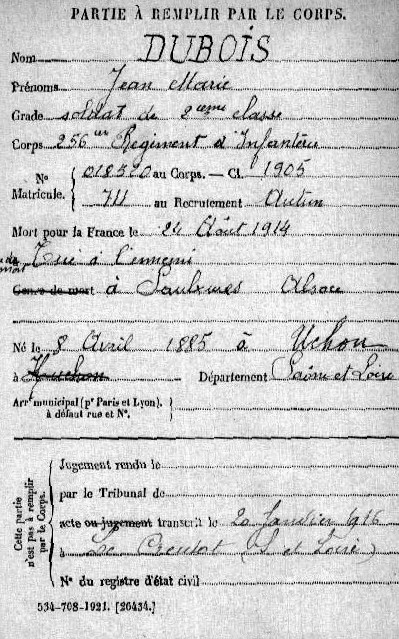 PARTIE À REMPLIR PAR LE CORPS.
Nom DUBOIS
Prénoms Jean Marie
Grade soldat de 2ième classe
Corps 256 Régiment d'Infanterie
N° Matricule. { 018520 au Corps. — Cl. 1905
711 au Recrutement Autun
Mort pour la France le 24 Août 1914
Tué à l'ennemi
Genre de mort à Saulxures Alsace
Né le 8 Avril 1885 à Uchon
à Huchon Département Saône et Loire
Arr municipal (pr Paris et Lyon),
à défaut rue et N°.
Cette partie n'est pas à remplir par le Corps.
Jugement rendu le
par le Tribunal de
acte ou jugement transcrit le 20 Janvier 1916
à Le Creusot (S et Loire)
N° du registre d'état civil
534-708-1921. [26434.]